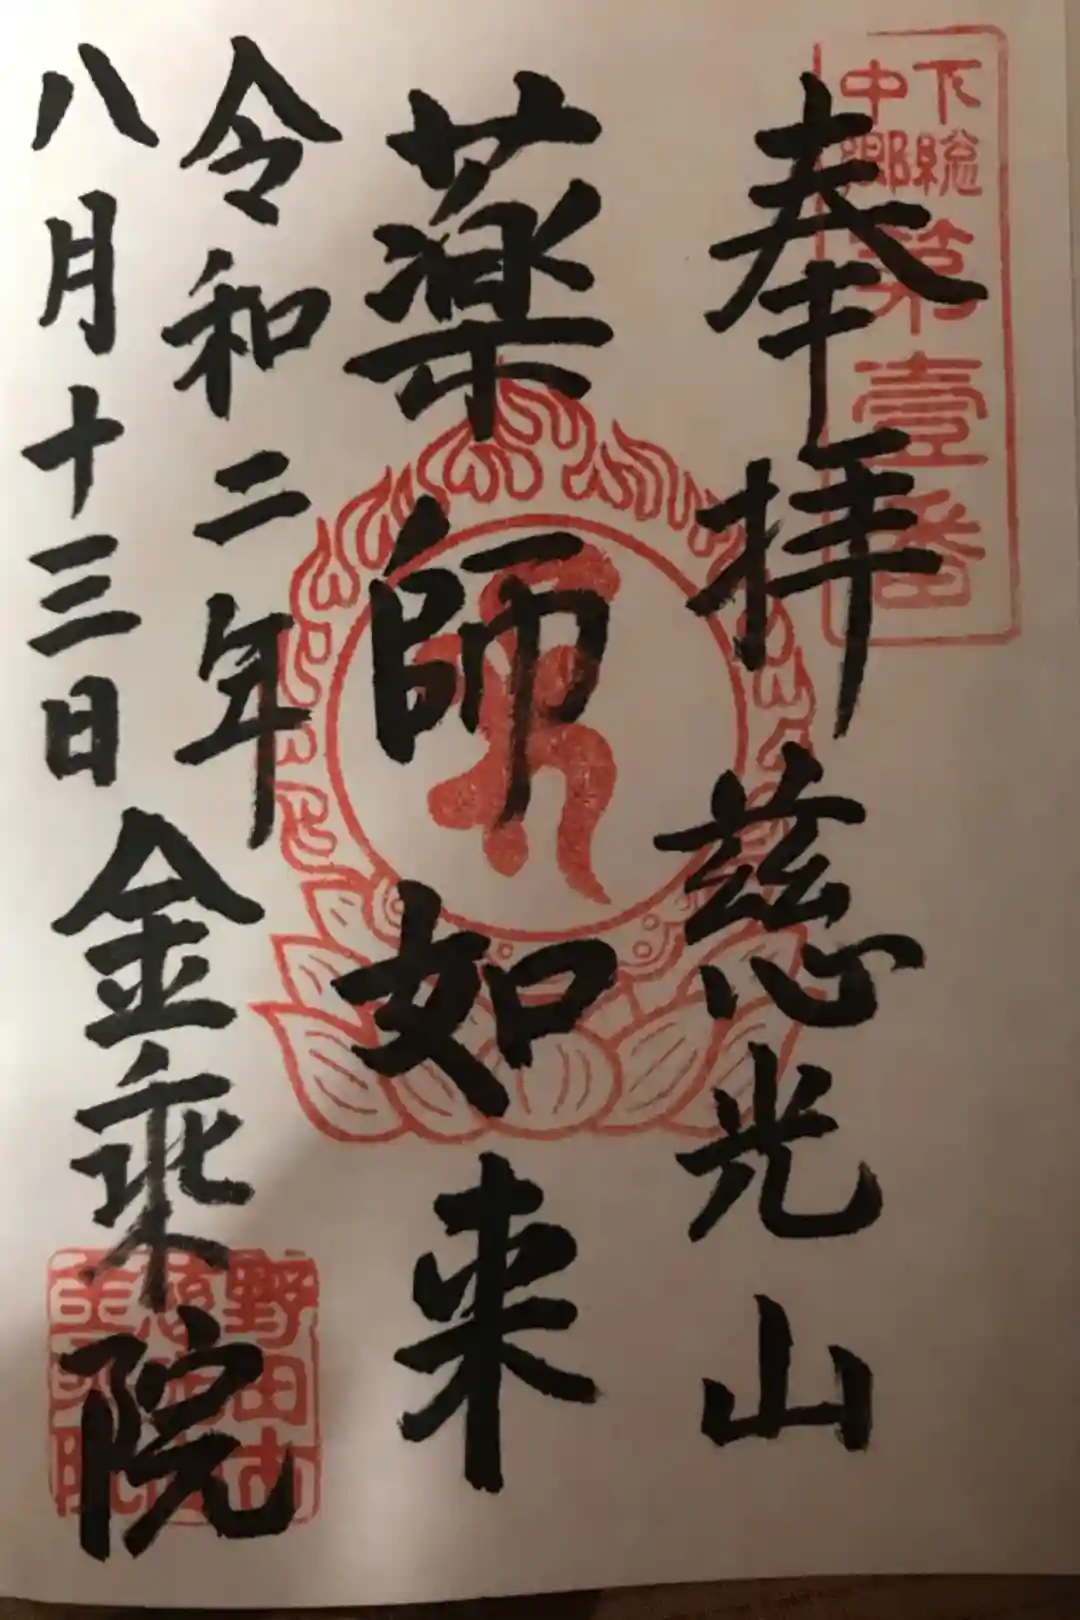 下総
中郷
第壹番
奉拝 慈光山
薬師如来
令和二年
八月十三日 金乗院
野田市